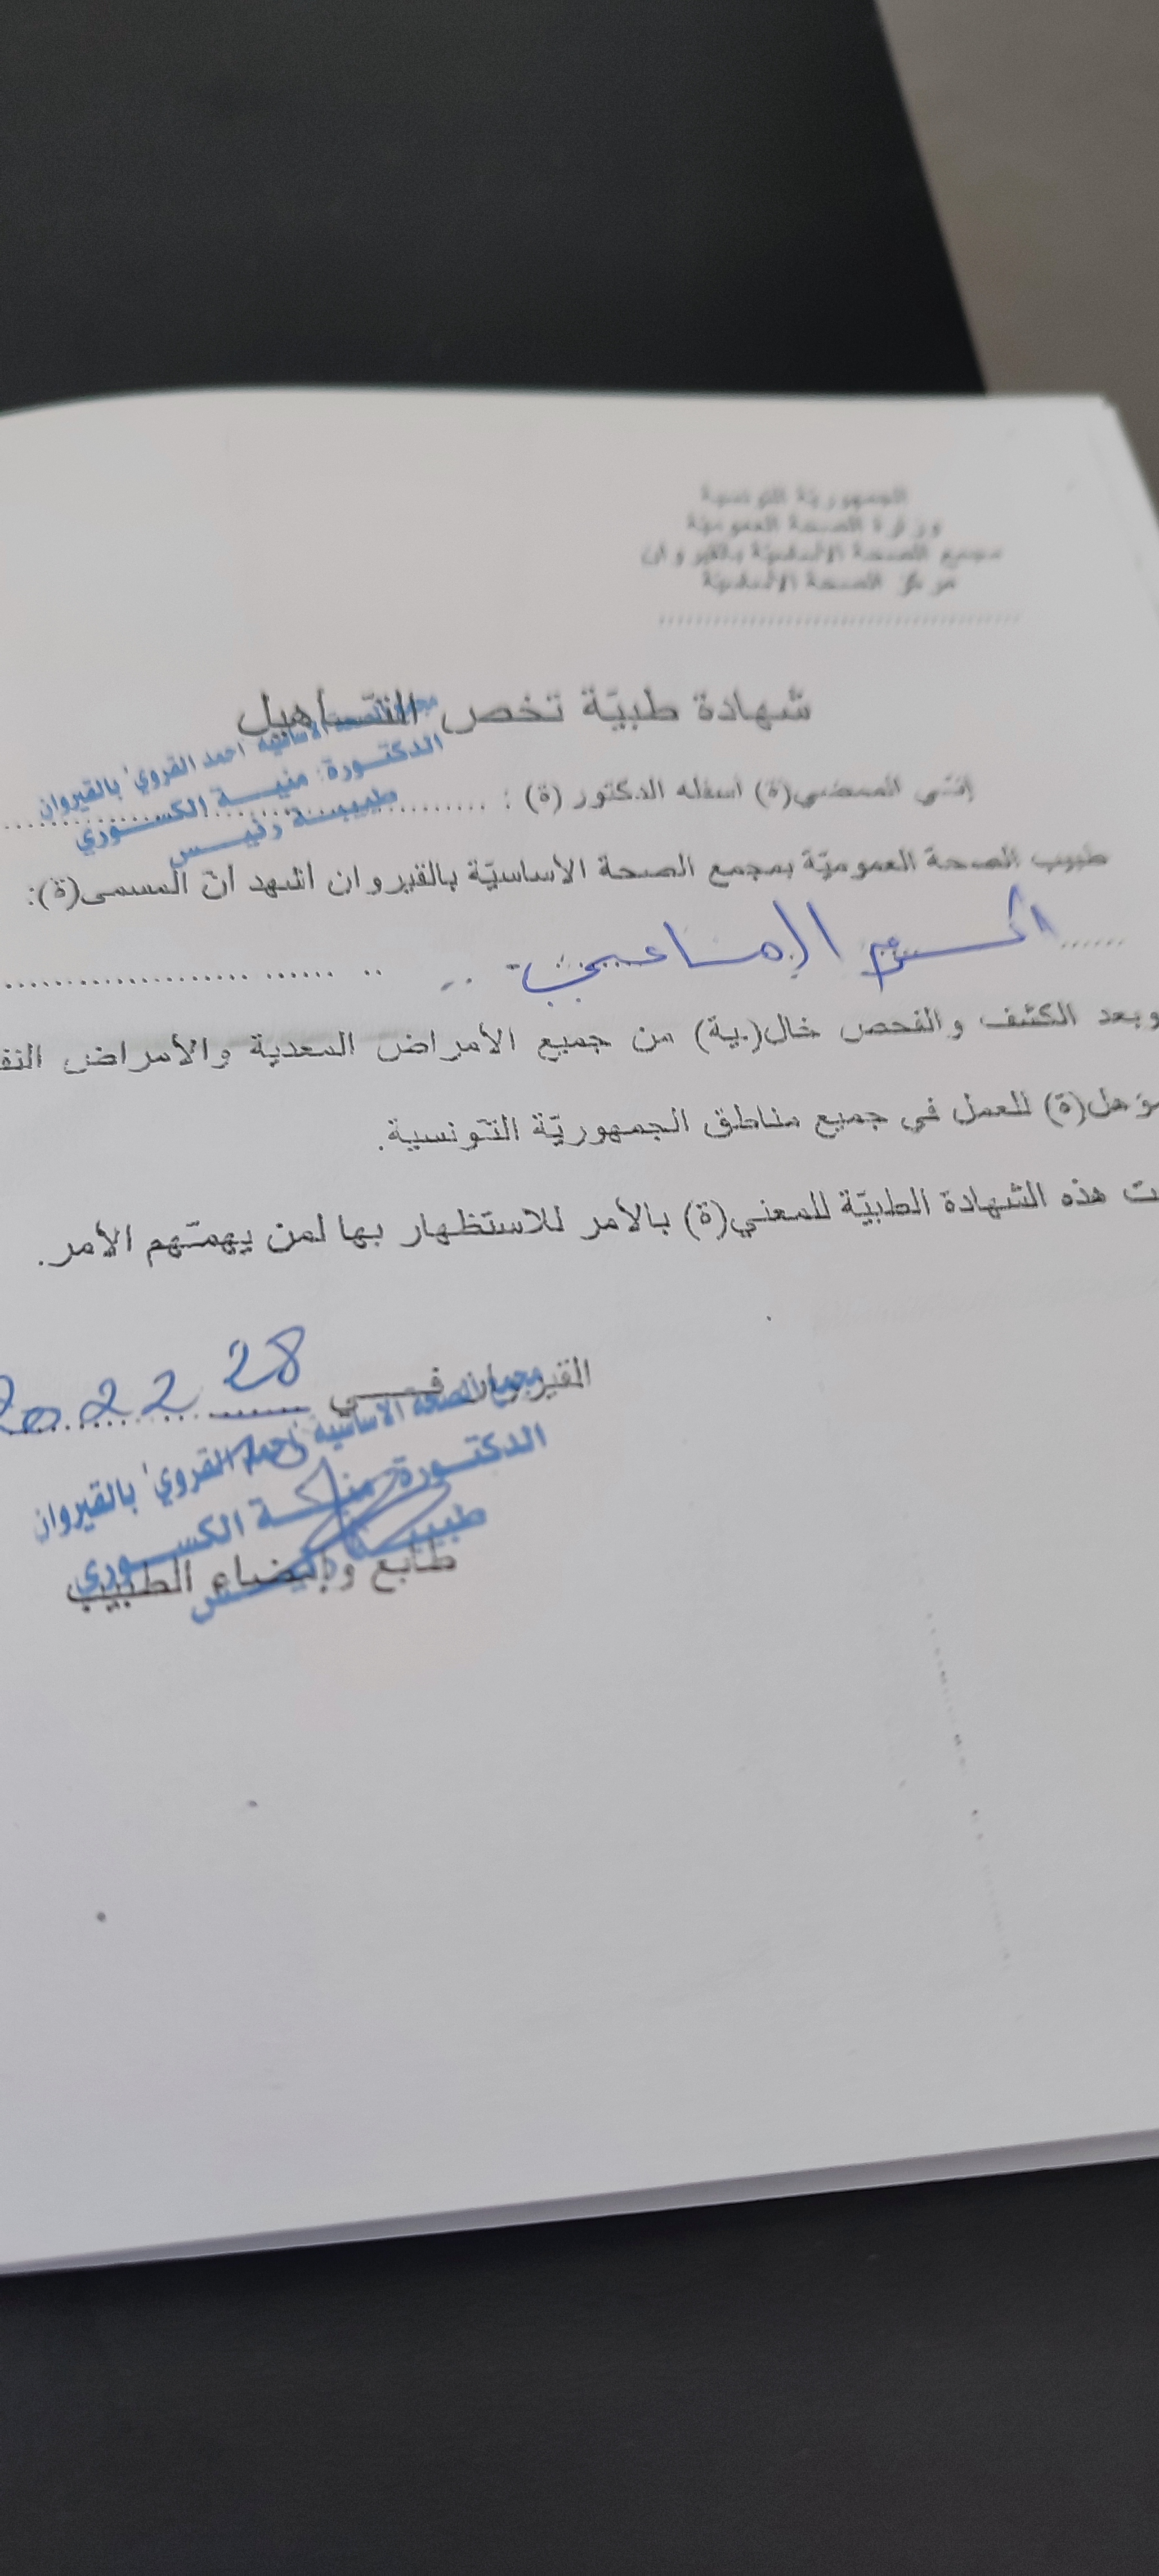 الجمهوريّة التونسية
وزارة الصحة العموميّة
مجمع الصحة الأساسيّة بالقيروان
مركز الصحة الأساسيّة
شهادة طبيّة تخص التّأهيل
مجمع الصحة الأساسية 'أحمد القروي' بالقيروان
الدكتورة: منية الكسوري
طبيبة رئيس
إنّني الممضي(ة) أسفله الدكتور (ة) :
طبيب الصحة العموميّة بمجمع الصحة الأساسيّة بالقيروان أشهد أنّ المسمى(ة):
وبعد الكشف والفحص خال(ية) من جميع الأمراض المعدية والأمراض
مؤهل(ة) للعمل في جميع مناطق الجمهوريّة التّونسية.
ت هذه الشهادة الطبيّة للمعني(ة) بالأمر للاستظهار بها لمن يهمّهم الأمر.
القيروان في 28 2022
مجمع الصحة الأساسية 'أحمد القروي' بالقيروان
الدكتورة منية الكسوري
طبيبة رئيس
طابع وإمضاء الطبيب